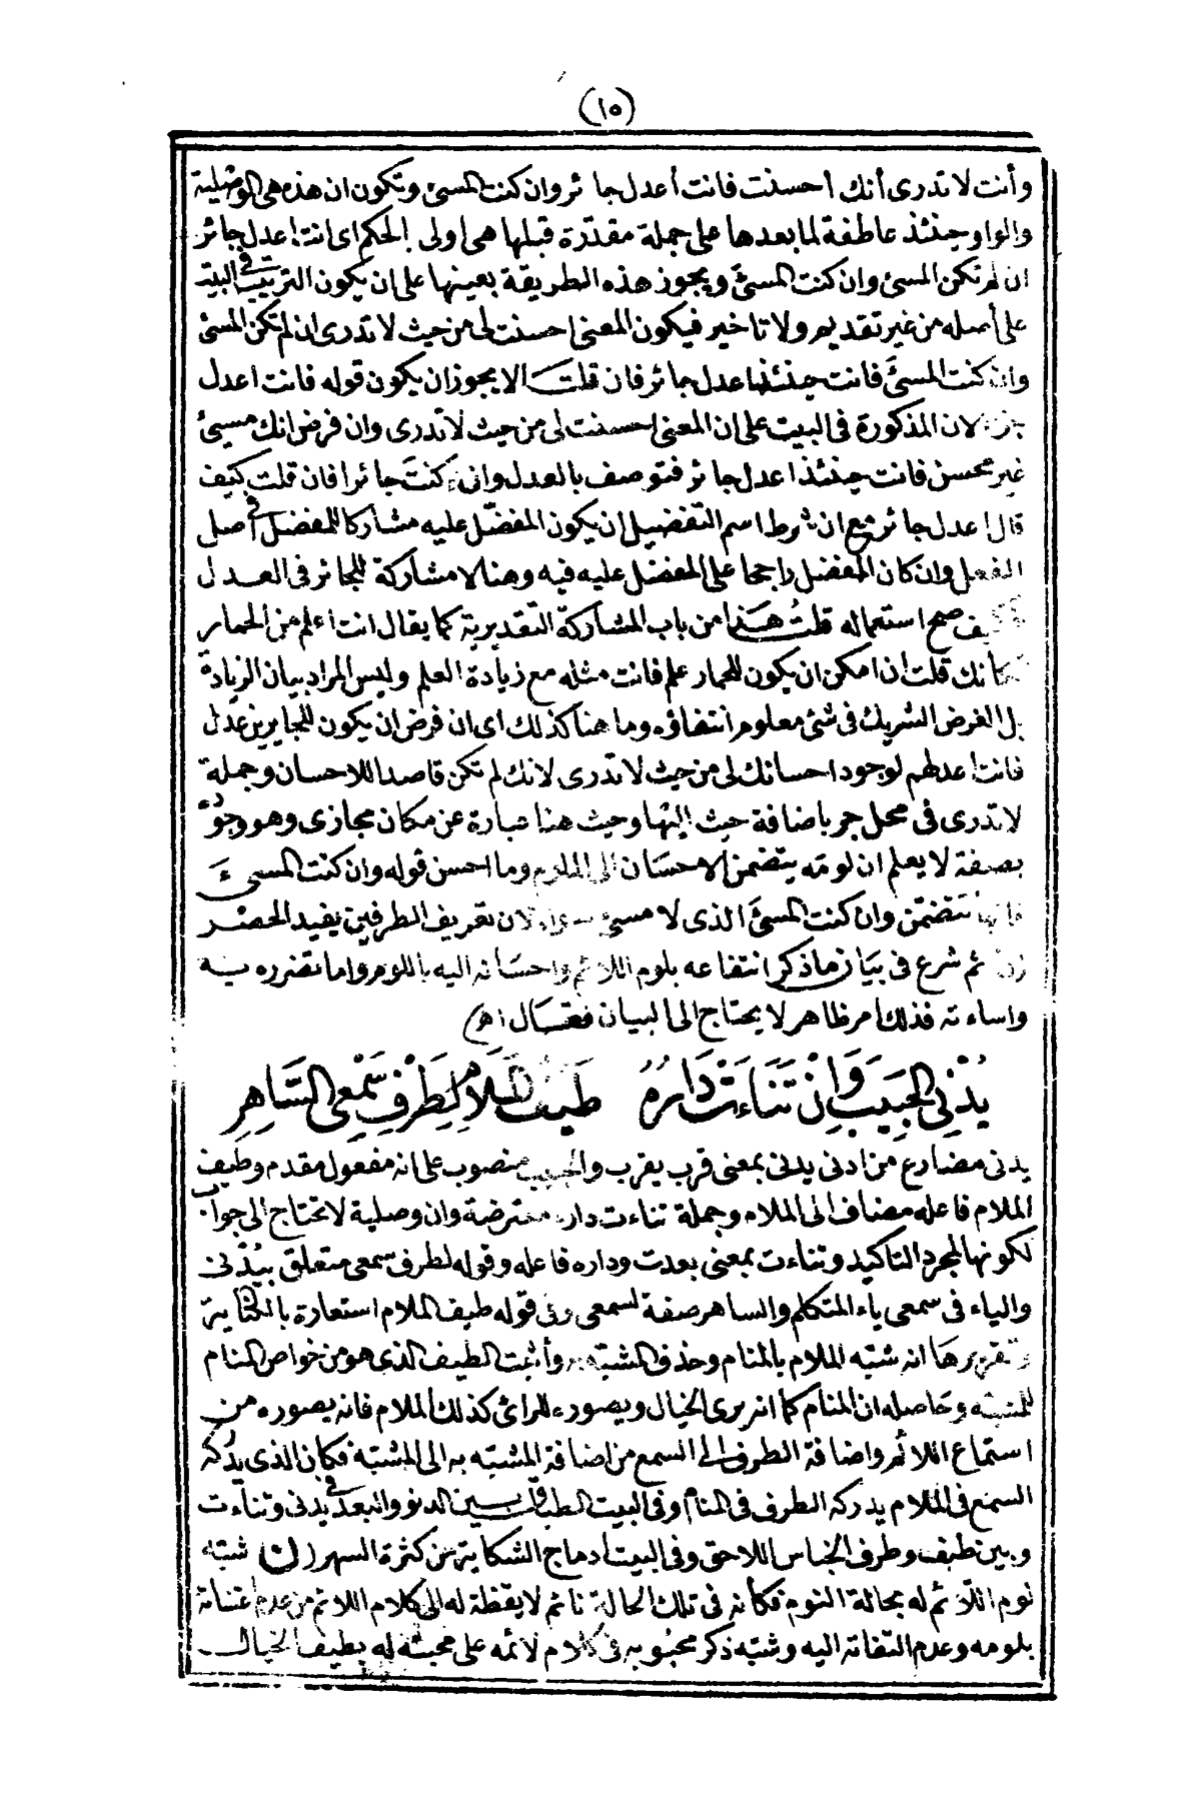 (١٥)
وأنت لا تدرى أنك احسنت فانت أعدل جائر وان كنت المسئ وتكون ان هذه هى الوصلية
والواو حينئذ عاطفة لما بعدها على جملة مقدرة قبلها هى اولى بالحكم اى انت اعدل جائر
ان لم تكن المسئ وان كنت المسئ ويجوز هذه الطريقة بعينها على ان يكون الترتيب فى البيت
على أصله من غير تقديم ولا تاخير فيكون المعنى احسنت لى من حيث لا تدرى ان لم تكن المسئ
وان كنت المسئ فانت حينئذ اعدل جائر فان قلت الا يجوز ان يكون قوله فانت اعدل
جائر لان المذكورة فى البيت على ان المعنى احسنت لى من حيث لا تدرى وان فرض انك مسيئ
غير محسن فانت حينئذ اعدل جائر فتوصف بالعدل وان كنت جائرا فان قلت كيف
قال اعدل جائر مع ان شرط اسم التفضيل ان يكون المفضل عليه مشاركا للمفضل فى اصل
الفعل وان كان المفضل راجحا على المفضل عليه فيه وهنا لا مشاركة للجائر فى العدل
فكيف صح استعماله قلت هذا من باب المشاركة التقديرية كما يقال انت اعلم من الحمار
كأنك قلت ان امكن ان يكون للحمار علم فانت مثله مع زيادة العلم وليس المراد بيان الزيادة
بل الغرض التشريك فى شئ معلوم انتفاؤه وما هنا كذلك اى ان فرض ان يكون للجايرين عدل
فانت اعدلهم لوجود احسانك لى من حيث لا تدرى لانك لم تكن قاصدا للاحسان وجملة
لا تدرى فى محل جر باضافة حيث اليها وحيث هنا عبارة عن مكان مجازى وهو وجوده
بصفة لا يعلم ان لومه يتضمن الاحسان الى الملوم وما احسن قوله وان كنت المسىء
فانها تتضمن وان كنت المسئ الذى لا مسئ سواه لان تعريف الطرفين يفيد الحصر
(ن) ثم شرع فى بيان ما ذكر انتفاعه بلوم اللائم واحسانه اليه باللوم واما تضرره به
واساءته فذلك امر ظاهر لا يحتاج الى البيان فقال اهـ
يُدْنِي الحَبِيبَ وَإِنْ تَنَاءَتْ دَارُهُ طَيْفُ المَلَامِ لِطَرْفِ سَمْعِي السَّاهِرِ
يدنى مضارع من ادنى يدنى بمعنى قرب يقرب والحبيب منصوب على انه مفعول مقدم وطيف
الملام فاعله مضاف الى الملام وجملة تناءت داره معترضة وان وصلية لا تحتاج الى جواب
لكونها لمجرد التاكيد وتناءت بمعنى بعدت وداره فاعله وقوله لطرف سمعى متعلق بيُدْنى
والياء فى سمعى ياء المتكلم والساهر صفة لسمعى وفى قوله طيف الملام استعارة بالكناية
وتقريرها انه شبّه الملام بالمنام وحذف المشبّه به وأثبت الطيف الذى هو من خواص المنام
للمشبّه وحاصله ان المنام كما انه يرى الخيال ويصوره للرائى كذلك الملام فانه يصوره من
استماع اللائم واضافة الطرف الى السمع من اضافة المشبّه به الى المشبّه فكان الذى يدركه
السمع فى الملام يدركه الطرف فى المنام وفى البيت الطباق بين الدنو والبعد فى يدنى وتناءت
وبين طيف وطرف الجناس اللاحق وفى البيت ادماج الشكاية من كثرة السهر (ن) شبّه
لوم اللائم له بحالة النوم فكأنه فى تلك الحالة نائم لا يقظة له الى كلام اللائم من عدم اعتنائه
بلومه وعدم التفاته اليه وشبّه ذكر محبوبه فى كلام لائمه على محبته له بطيف الخيال